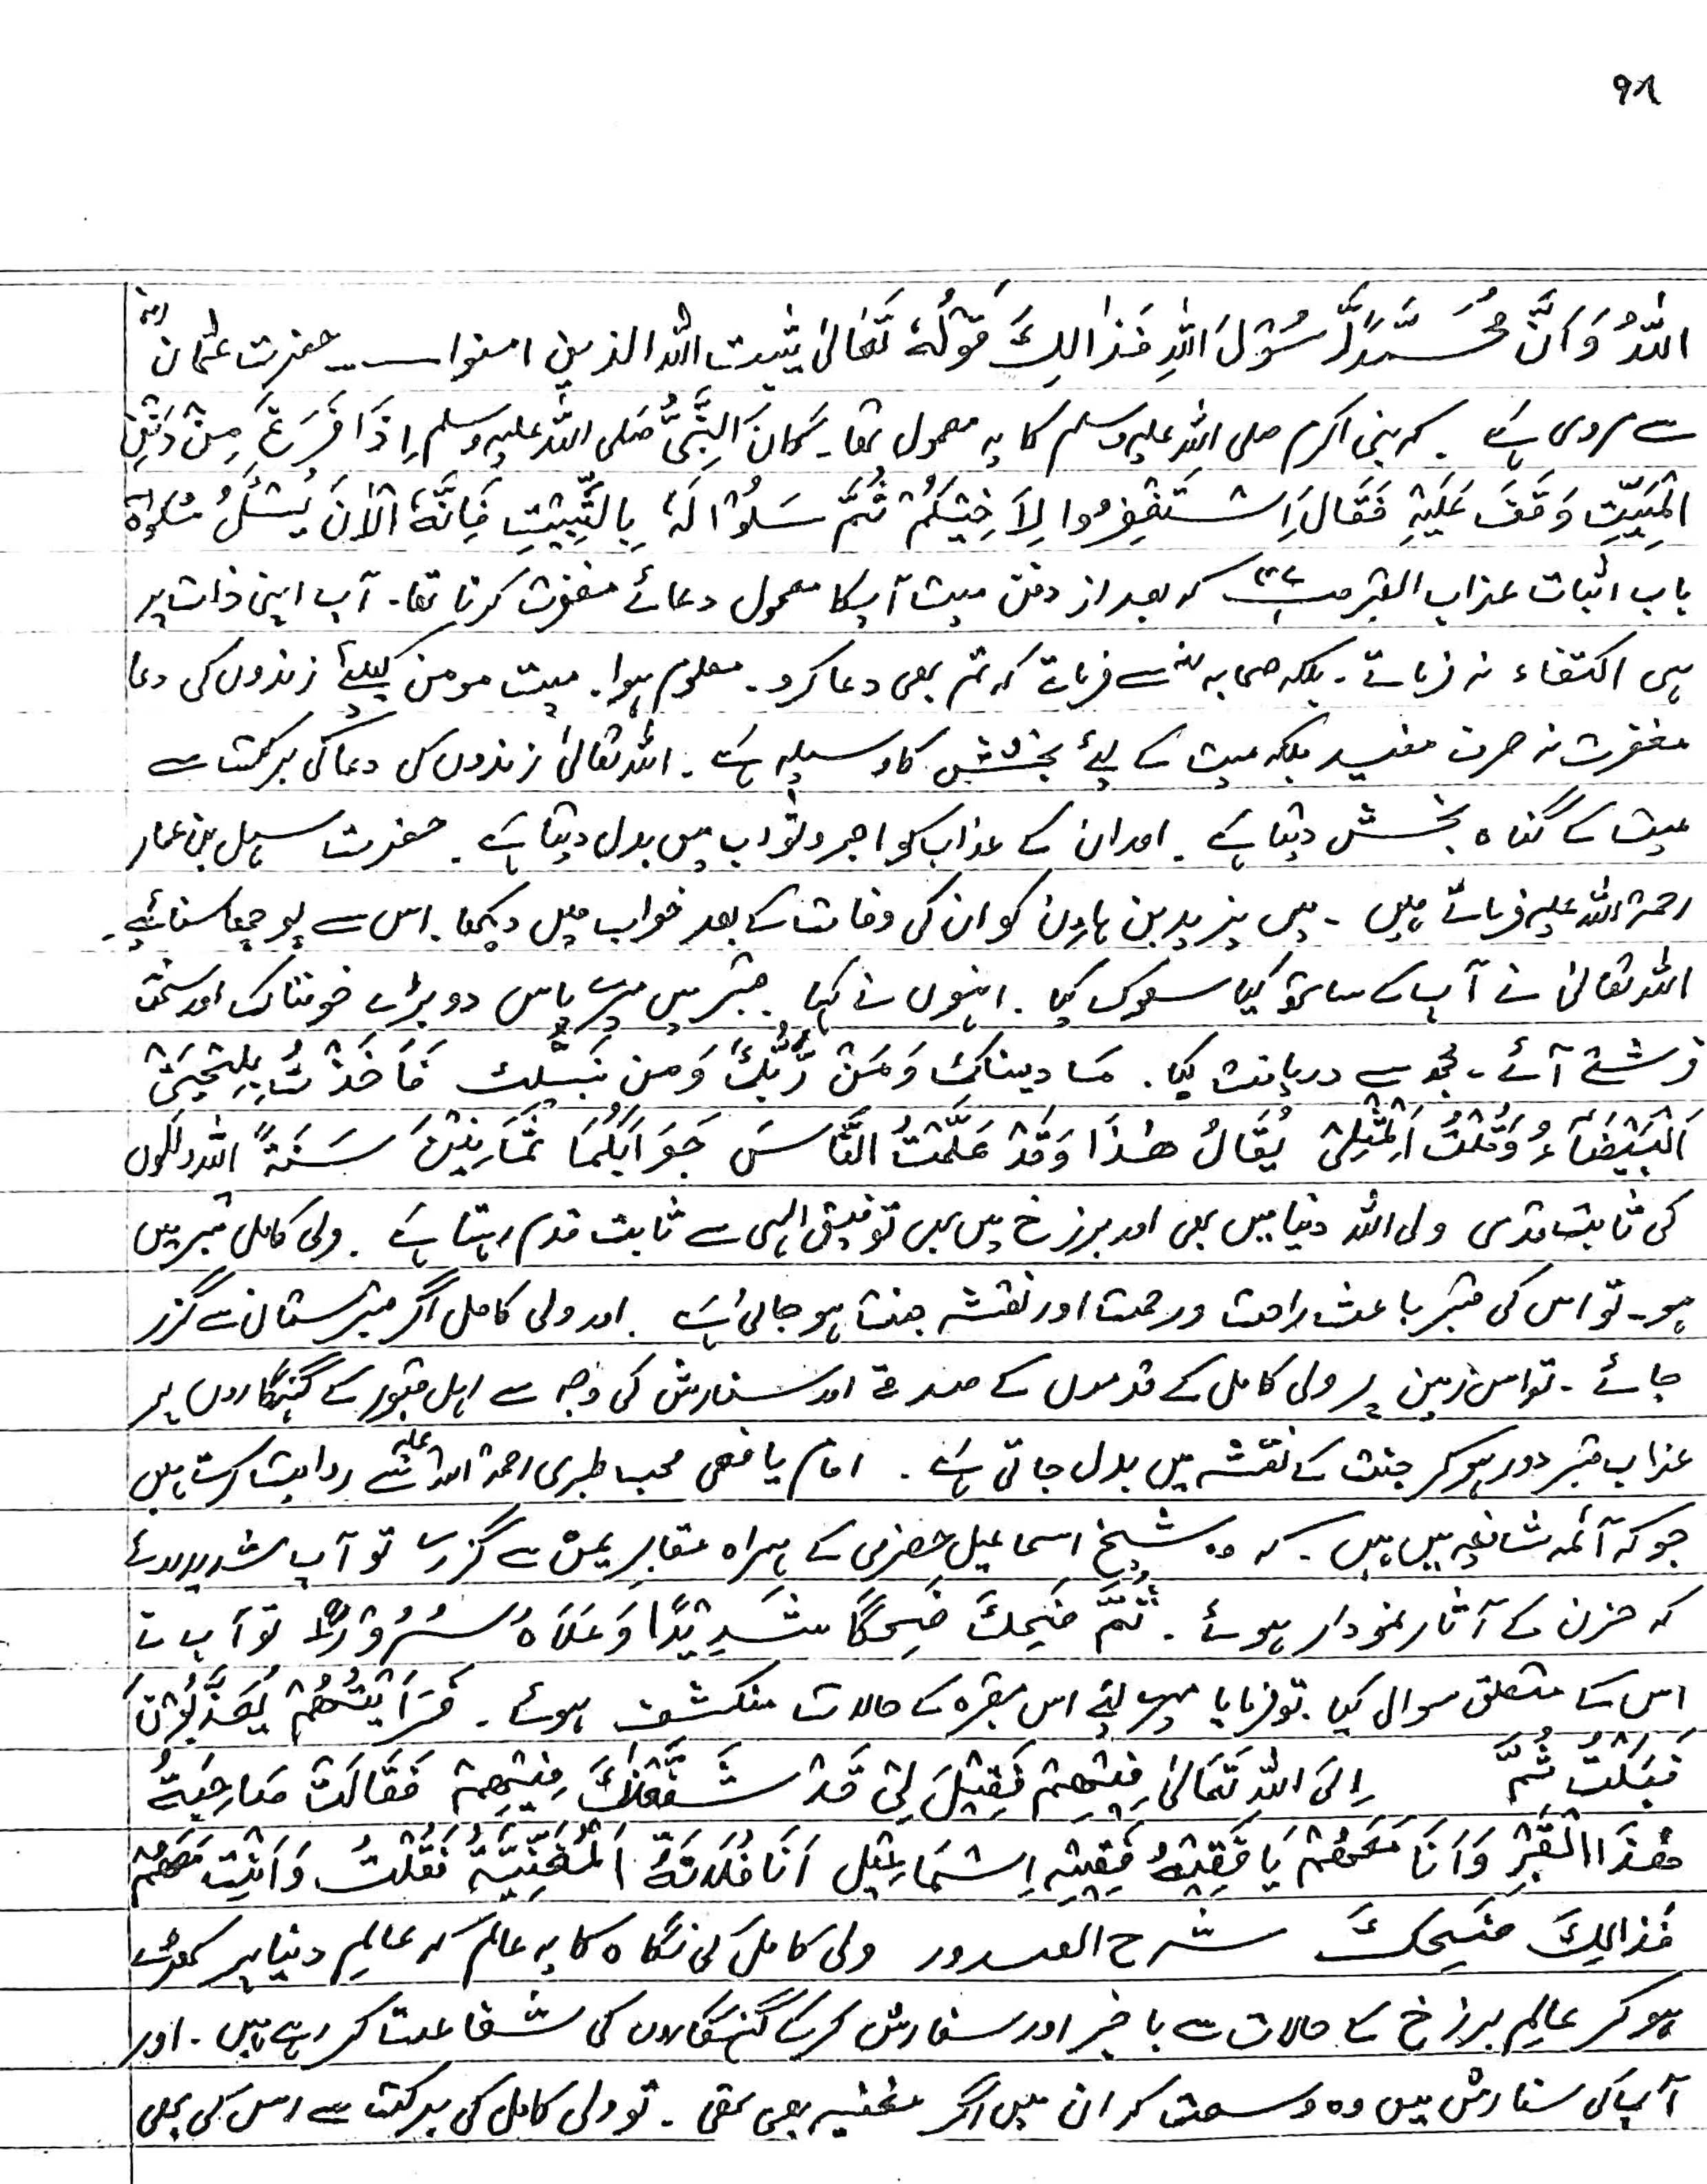 ۹۸
اللّٰہُ وَاَنَّ مُحَمَّدًا رَّسُوْلَ اللّٰہِ فَذَالِکَ قَوْلُہٗ تَعَالیٰ یثبت اللہ الذین امنوا ۔۔ حضرت عثمانؓ
سے مروی ہے ۔ کہ نبی اکرم صلی اللہ علیہ وسلم کا یہ معمول تھا۔ کَانَ النَّبِیُّ صَلی اللہ علیہ وسلم اِذَا فَرَغَ مِنْ دَفْنِ
الْمَیِّتِ وَقَفَ عَلَیْہِ فَقَالَ اِسْتَغْفِرُوا لِاَخِیْکُمْ ثُمَّ سَلُوْا لَہٗ بِالتَّثْبِیْتِ فَاِنَّہٗ الْاٰنَ یُسْئَلُ مشکوٰۃ
باب اثبات عذاب القبر کہ بعد از دفن میت آپکا معمول دعائے مغفرت کرنا تھا۔ آپ اپنی ذات پر
ہی اکتفاء نہ فرماتے۔ بلکہ صحابہؓ سے فرماتے کہ تم بھی دعا کرو۔ معلوم ہوا۔ میت مومن کیلئے زندوں کی دعا
مغفرت نہ صرف مفید بلکہ میت کے لئے بخشش کا وسیلہ ہے۔ اللہ تعالیٰ زندوں کی دعا کی برکت سے
میت کے گناہ بخش دیتا ہے۔ اور ان کے عذاب کو اجر و ثواب میں بدل دیتا ہے۔ حضرت سہل بن عمار
رحمۃ اللہ علیہ فرماتے ہیں ۔ میں یزید بن ہارون کو ان کی وفات کے بعد خواب میں دیکھا۔ اس سے پوچھا سنائیے۔
اللہ تعالیٰ نے آپ کے ساتھ کیا سلوک کیا ۔ انہوں نے کہا ۔ قبر میں میرے پاس دو بڑے خوفناک اور سخت
فرشتے آئے ۔ مجھ سے دریافت کیا ۔ مَا دینک وَمَنْ رَّبُّکَ وَمن نبیک فَاَخَذْتُ بِلِحْیَتِیْ
اَلْبَیْضَاءِ وَقُلْتُ اَلِمِثْلِیْ یُقَالُ ھٰذَا وَقَدْ عَلَّمْتُ النَّاسَ جَوَابَکُمَا ثَمَانِیْنَ سَنَۃً اللہ والوں
کی ثابت قدمی ولی اللہ دنیا میں بھی اور برزخ میں بھی توفیق الٰہی سے ثابت قدم رہتا ہے ۔ ولی کامل قبر میں
ہو۔ تو اس کی قبر باعث راحت ورحمت اور نقشہ جنت ہو جاتی ہے ۔ اور ولی کامل اگر قبرستان سے گزر
جائے ۔ تو اس زمین پر ولی کامل کے قدموں کے صدقے اور سفارش کی وجہ سے اہل قبور کے گنہگاروں پر
عذاب قبر دور ہو کر جنت کے نقشہ میں بدل جاتی ہے ۔ امام یافعی محب طبری رحمۃ اللہ علیہ سے روایت کرتے ہیں
جو کہ آئمہ شافعیہ میں ہیں ۔ کہ وہ شیخ اسماعیل حضرمی کے ہمراہ مقابر یمن سے گزرے تو آپ شدید روئے
کہ حزن کے آثار نمودار ہوئے ۔ ثُمَّ ضَحِکَ ضَحِکًا شَدِیْدًا وَعَلَاہُ سُرُوْرٌ تو آپ نے
اس کے متعلق سوال کیا ۔ تو فرمایا میرے لئے اس مقبرہ کے حالات منکشف ہوئے ۔ فَرَاَیْتُھُمْ یُعَذَّبُوْنَ
فَبَکَیْتُ ثُمَّ اِلَی اللہِ تَعَالیٰ فِیْھِمْ فَقِیْلَ لِیْ قَدْ شَفَّعْنَاکَ فِیْھِمْ فَقَالَتْ صَاحِبَۃُ
ھٰذَا الْقَبْرِ وَاَنَا مَعَھُمْ یَا فَقِیْہُ اِسْمَاعِیْل اَنَا فُلَانَۃٌ اَلْمُغَنِّیَۃُ فَقُلْتُ وَاَنْتِ مَعَھُمْ
فَذَالِکَ ضَحِکَ شرح الصدور ولی کامل کی نگاہ کا یہ عالم کہ عالمِ دنیا پر کھڑے
ہو کر عالمِ برزخ کے حالات سے باخبر اور سفارش کر کے گنہگاروں کی شفاعت کر رہے ہیں ۔ اور
آپ کی سفارش میں وہ وسعت کہ ان میں اگر مغنیہ بھی تھی ۔ تو ولی کامل کی برکت سے اس کی بھی